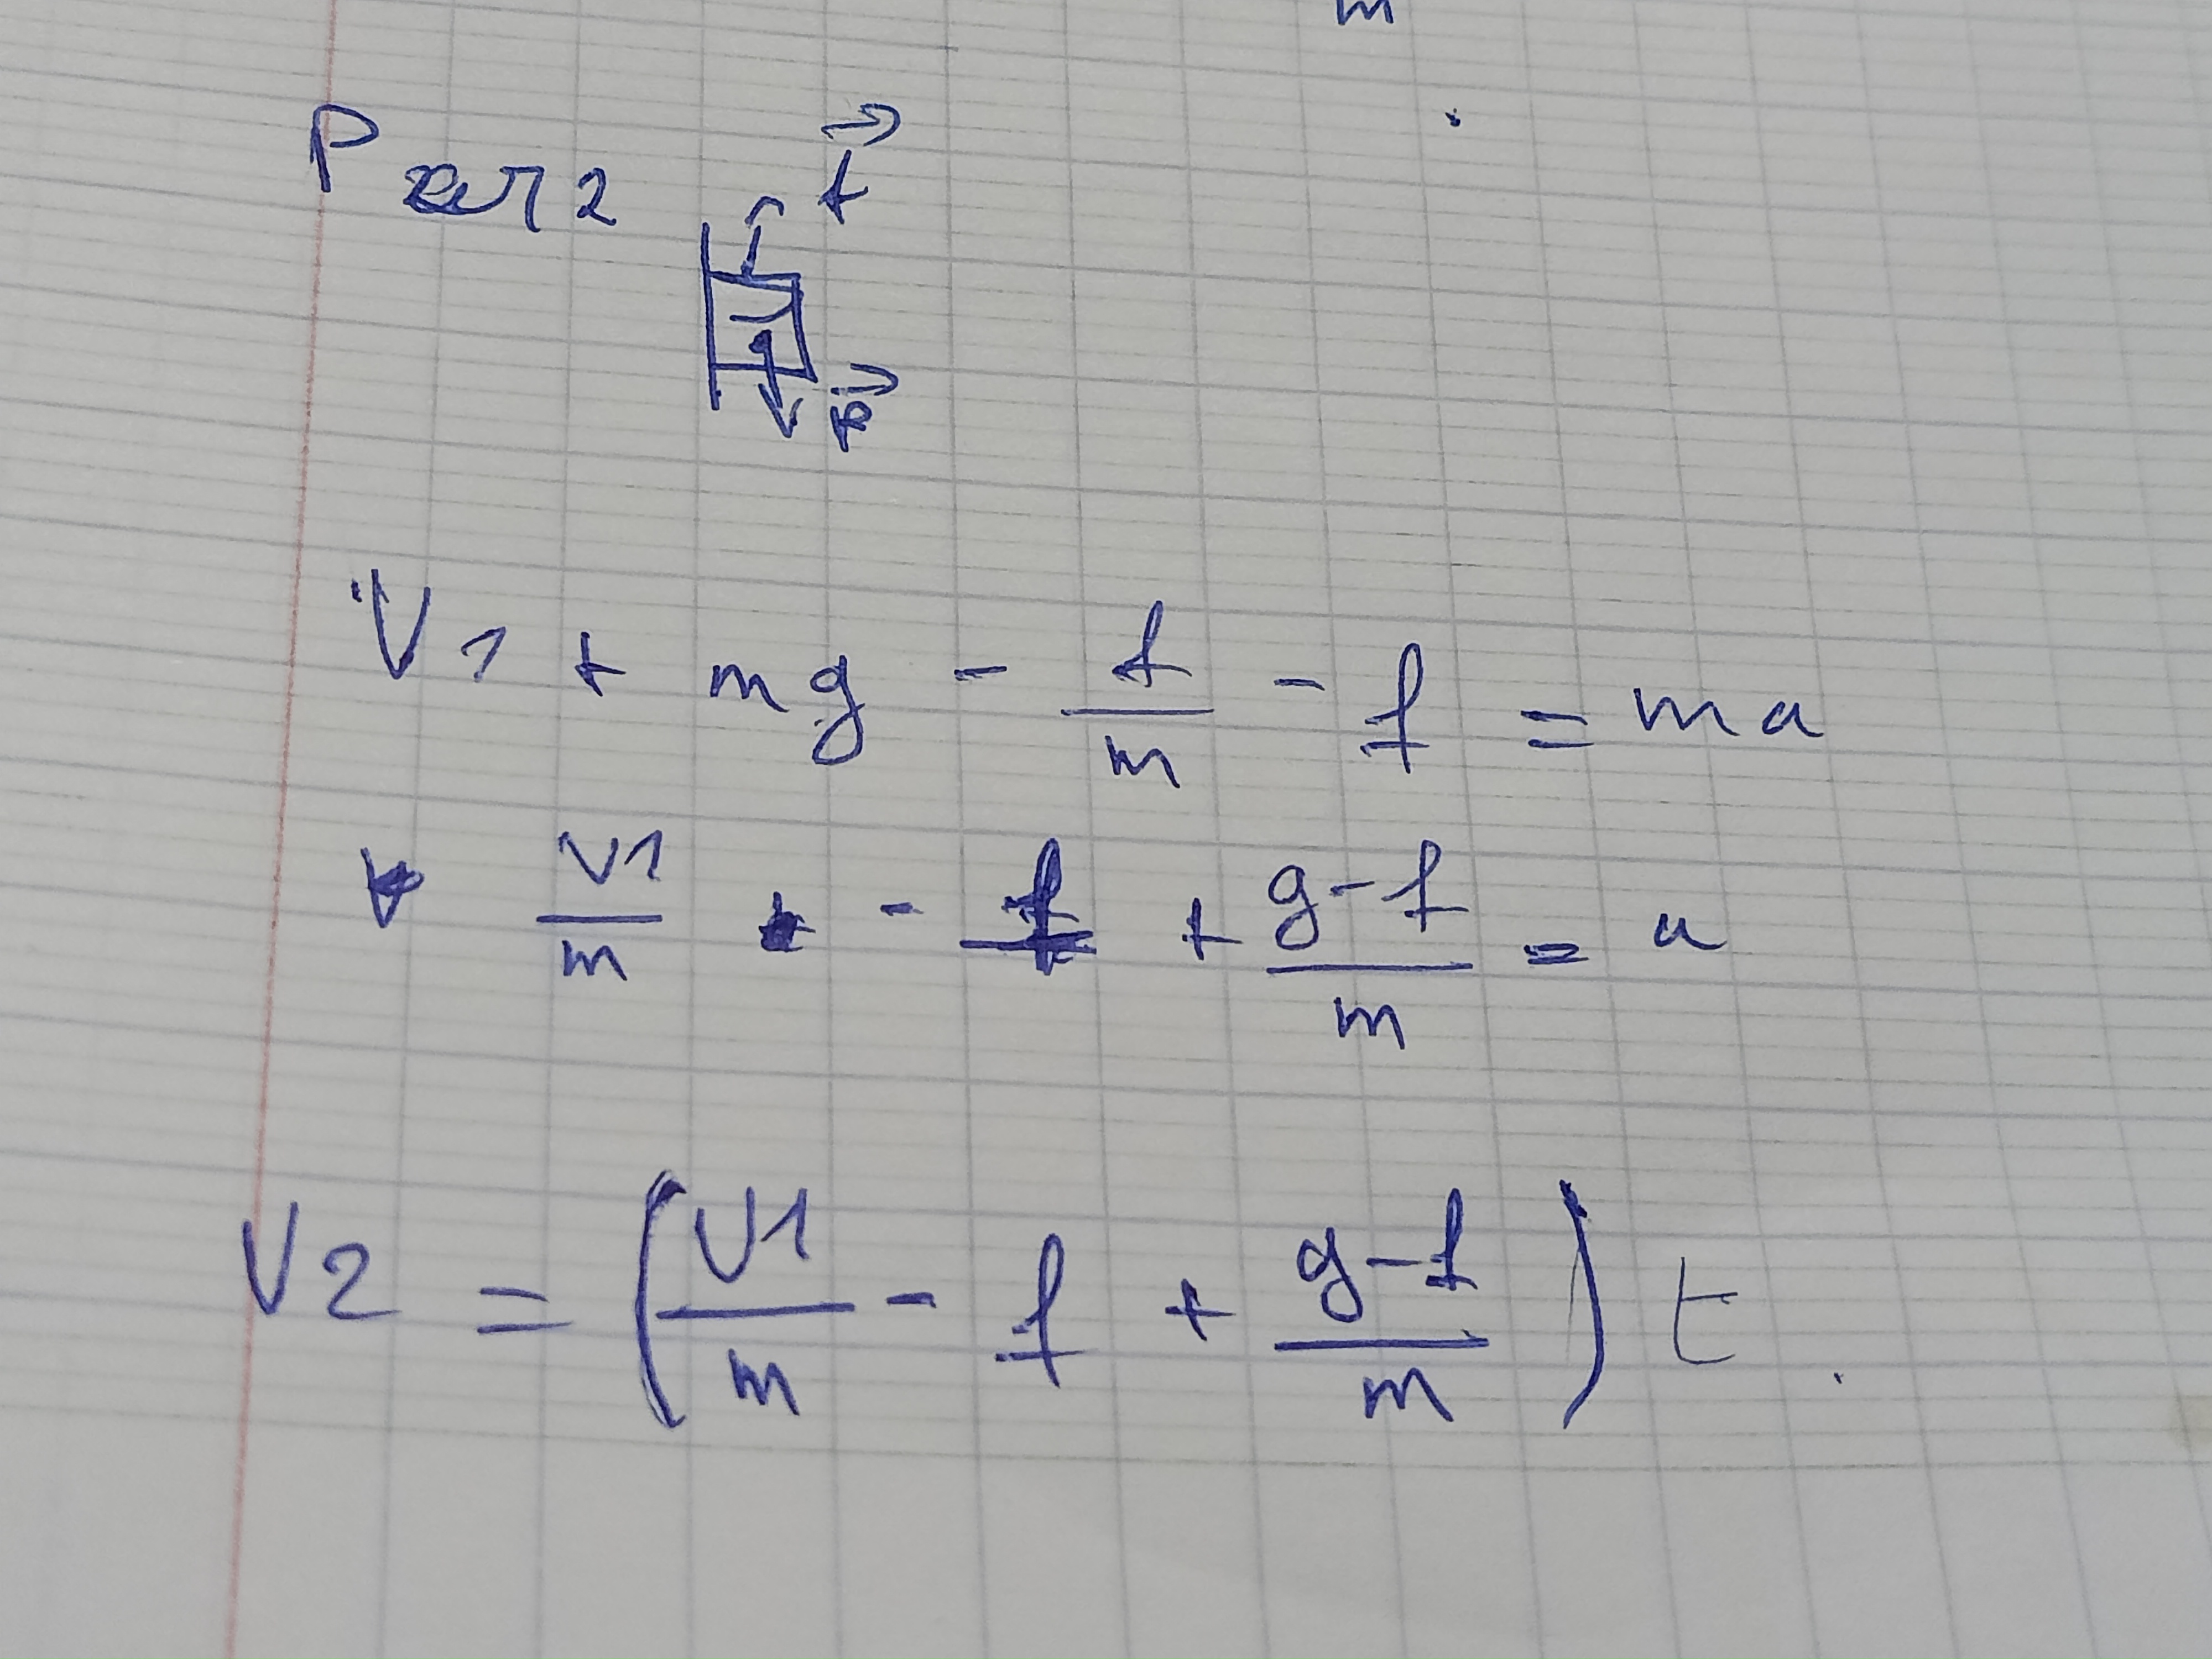 m
Par 2
f
P
V1 + mg - f/m - f = ma
V1/m - f + (g-f)/m = a
V2 = (V1/m - f + (g-f)/m) t